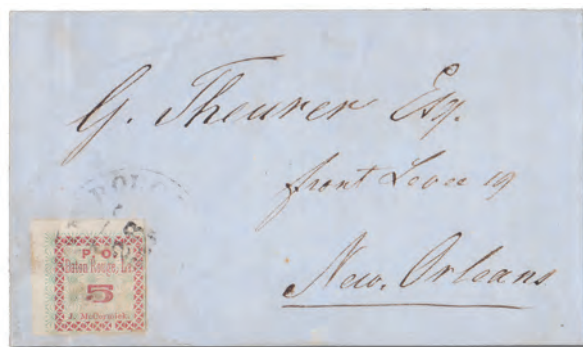 G. Theurer Esq.
front Levee 19
New. Orleans
P. O.
Baton Rouge, La.
5
J. McCormick.